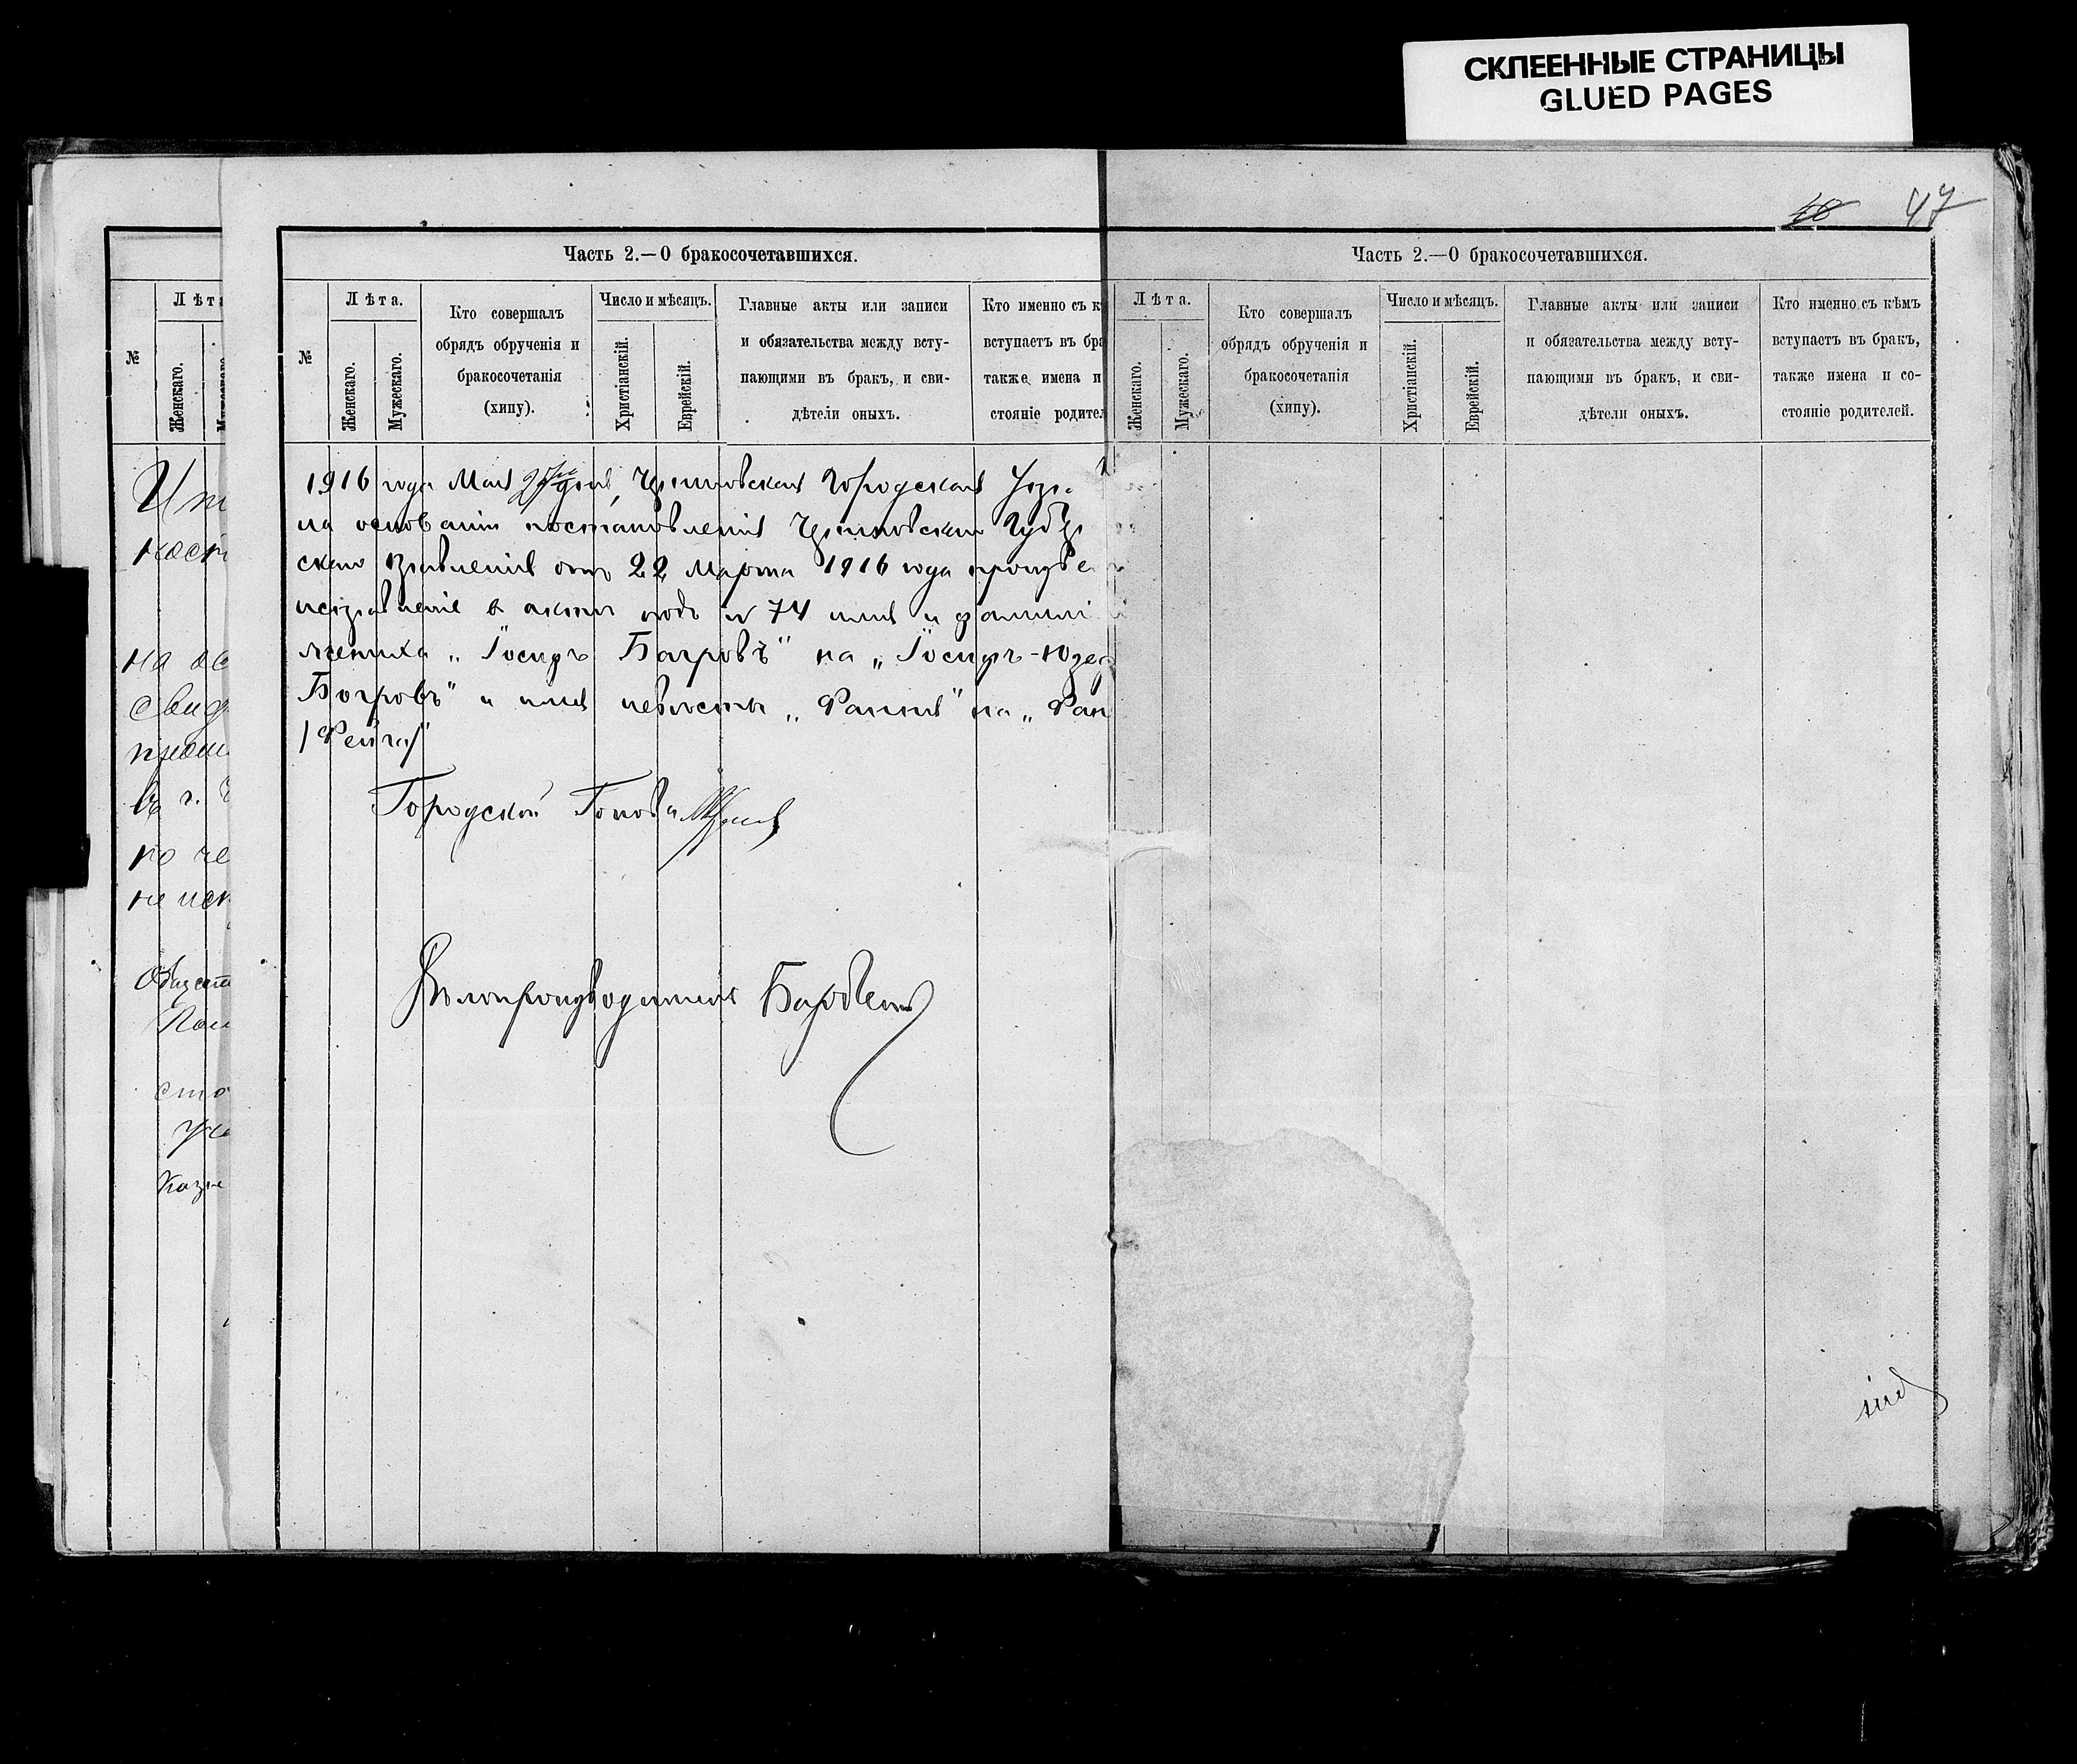 СКЛЕЕННЫЕ СТРАНИЦЫ
GLUED PAGES
47
Лѣта
№
Женскаго.
Ит
на ос
свид
въ г.
по че
не иск
сто
Казе
Часть 2.—О бракосочетавшихся.
№
Лѣта.
Женскаго.
Мужескаго.
Кто совершалъ
обрядъ обрученія и
бракосочетанія
(хипу).
Число и мѣсяцъ.
Христіанскій.
Еврейскій.
Главные акты или записи
и обязательства между всту-
пающими въ бракъ, и сви-
дѣтели оныхъ.
Кто именно съ к
вступаетъ въ бра
также имена и
стояніе родител
1916 года Мая дня, Черниговская Городская Упра
на основаніи постановленія Черниговскаго Губерн
скаго Правленія отъ 22 Марта 1916 года произве
исправленіе въ актѣ подъ № 74 имя и фамилі
жениха „Іосифъ Багровъ" на „Іосифъ-Юзеф
Богровъ" и имя невѣсты „Фання" на „Фан
/Фейга/"
Городской Голова
Дѣлопроизводитель
Часть 2.—О бракосочетавшихся.
Лѣта.
Женскаго.
Мужескаго.
Кто совершалъ
обрядъ обрученія и
бракосочетанія
(хипу).
Число и мѣсяцъ.
Христіанскій.
Еврейскій.
Главные акты или записи
и обязательства между всту-
пающими въ бракъ, и сви-
дѣтели оныхъ.
Кто именно съ кѣмъ
вступаетъ въ бракъ,
также имена и со-
стояніе родителей.